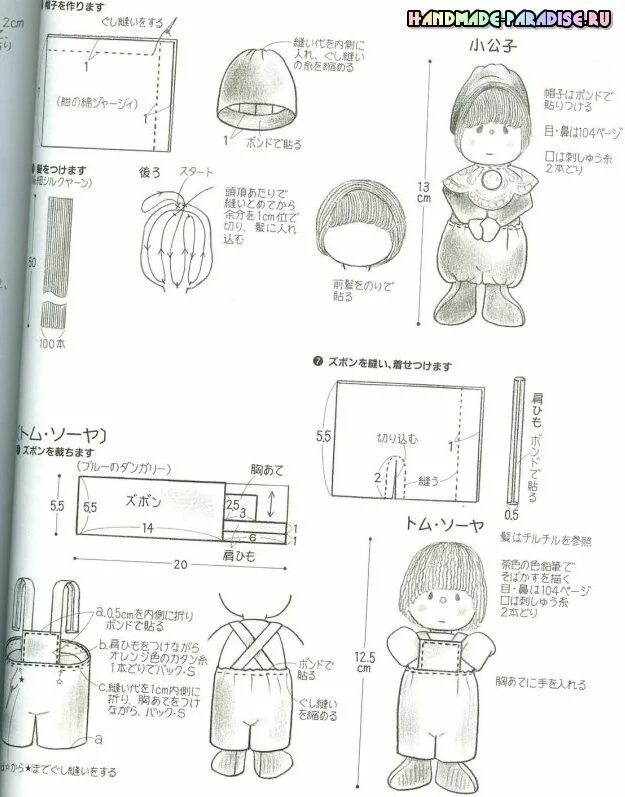 HANDMADE-PARADISE.RU
帽子を作ります
2cm
ぐし縫いをする
1
1
(紺の綿ジャージィ)
縫い代を内側に
入れ、ぐし縫い
の糸を縮める
1
ボンドで貼る
小公子
帽子はボンドで
貼りつける
目・鼻は104ページ
口は刺しゅう糸
2本どり
13
cm
髪をつけます
シルクヤーン)
50
100本
後ろ
スタート
頭頂あたりで
縫いとめてから
余分を1cm位で
切り、髪に入れ
込む
前髪をのりで
貼る
❼ ズボンを縫い、着せつけます
5.5
切り込む
2
縫う
1
肩ひも
ボンドで貼る
0.5
(トム・ソーヤ)
ズボンを裁ちます
(ブルーのダンガリー)
胸あて
5.5
5.5
ズボン
14
2.5
3
6
1
1
肩ひも
20
a.0.5cmを内側に折り
ボンドで貼る
b.肩ひもをつけながら
オレンジ色のカタン糸
1本どりでバック・S
c.縫い代を1cm内側に
折り、胸あてをつけ
ながら、バック・S
a
☆から★までぐし縫いをする
ボンドで
貼る
ぐし縫い
を縮める
トム・ソーヤ
12.5
cm
髪はチルチルを参照
茶色の色鉛筆で
そばかすを描く
目・鼻は104ページ
口は刺しゅう糸
2本どり
胸あてに手を入れる